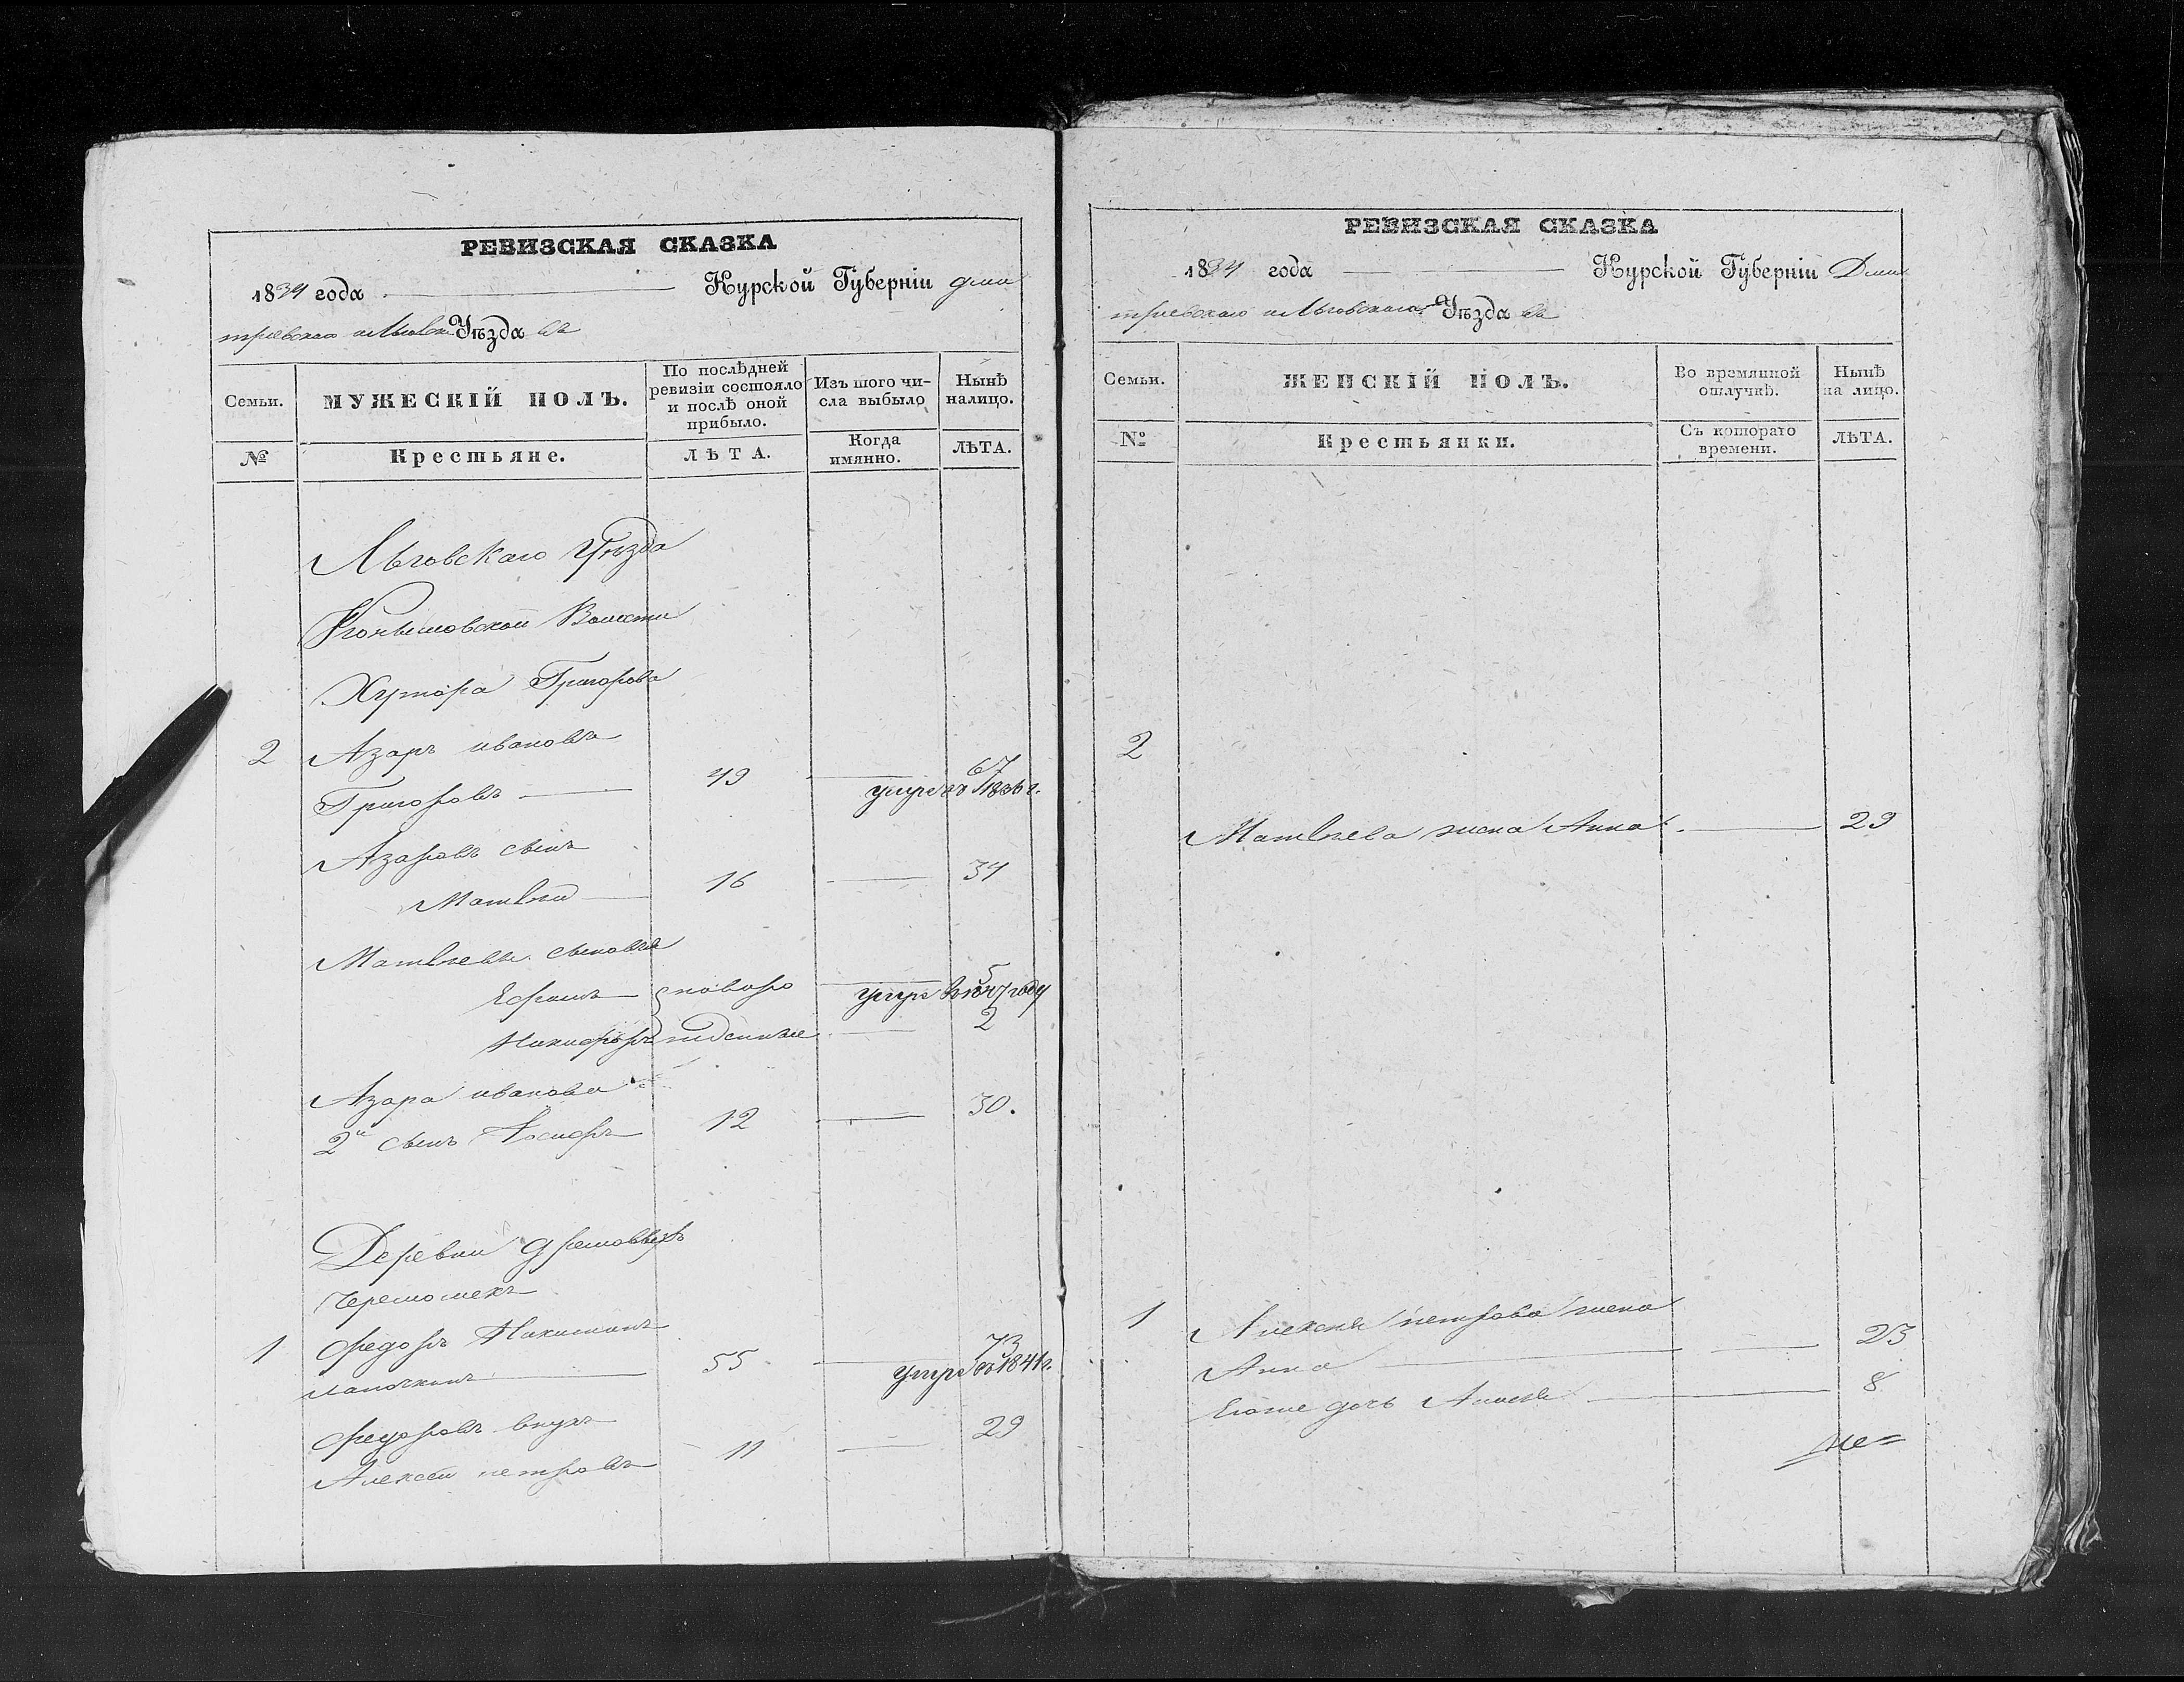 РЕВИЗСКАЯ СКАЗКА
1834 года Курской Губерніи Дми
тріевскаго и Льговск Уѣзда въ
Семьи.
МУЖЕСКІЙ ПОЛЪ.
По послѣдней
ревизіи состояло
и послѣ оной
прибыло.
Изъ того чи-
сла выбыло
Нынѣ
налицо.
№
Крестьяне.
ЛѢТА.
Когда
имянно.
ЛѢТА.
Льговскаго Уѣзда
Волости
Хутора Григорова
2 Азаръ ивановъ
67
Григоровъ 49 умре въ 1836 г.
Азаровъ сынъ
Матвей 16 34
Матвѣевы сыновья
5
Ефимъ новоро умре въ 1847 году
Никифоръ жденные 2
Азара иванова
2й сынъ Иосифъ 12 30.
Деревни
Черемошекъ
1 Федоръ Никитинъ
73
Лапочкинъ 55 умре въ 1841 г.
Федоровъ внукъ
Алексей петровъ 11 29
РЕВИЗСКАЯ СКАЗКА
1834 года Курской Губерніи Дми
тріевскаго и Льговскаго Уѣзда въ
Семьи.
ЖЕНСКІЙ ПОЛЪ.
Во времянной
отлучкѣ.
Нынѣ
на лицо.
№
Крестьянки.
Съ котораго
времени.
ЛѢТА.
2
Матвѣева жена Анна 29
1 Алексея петрова жена
Анна 23
Егоже дочь 8